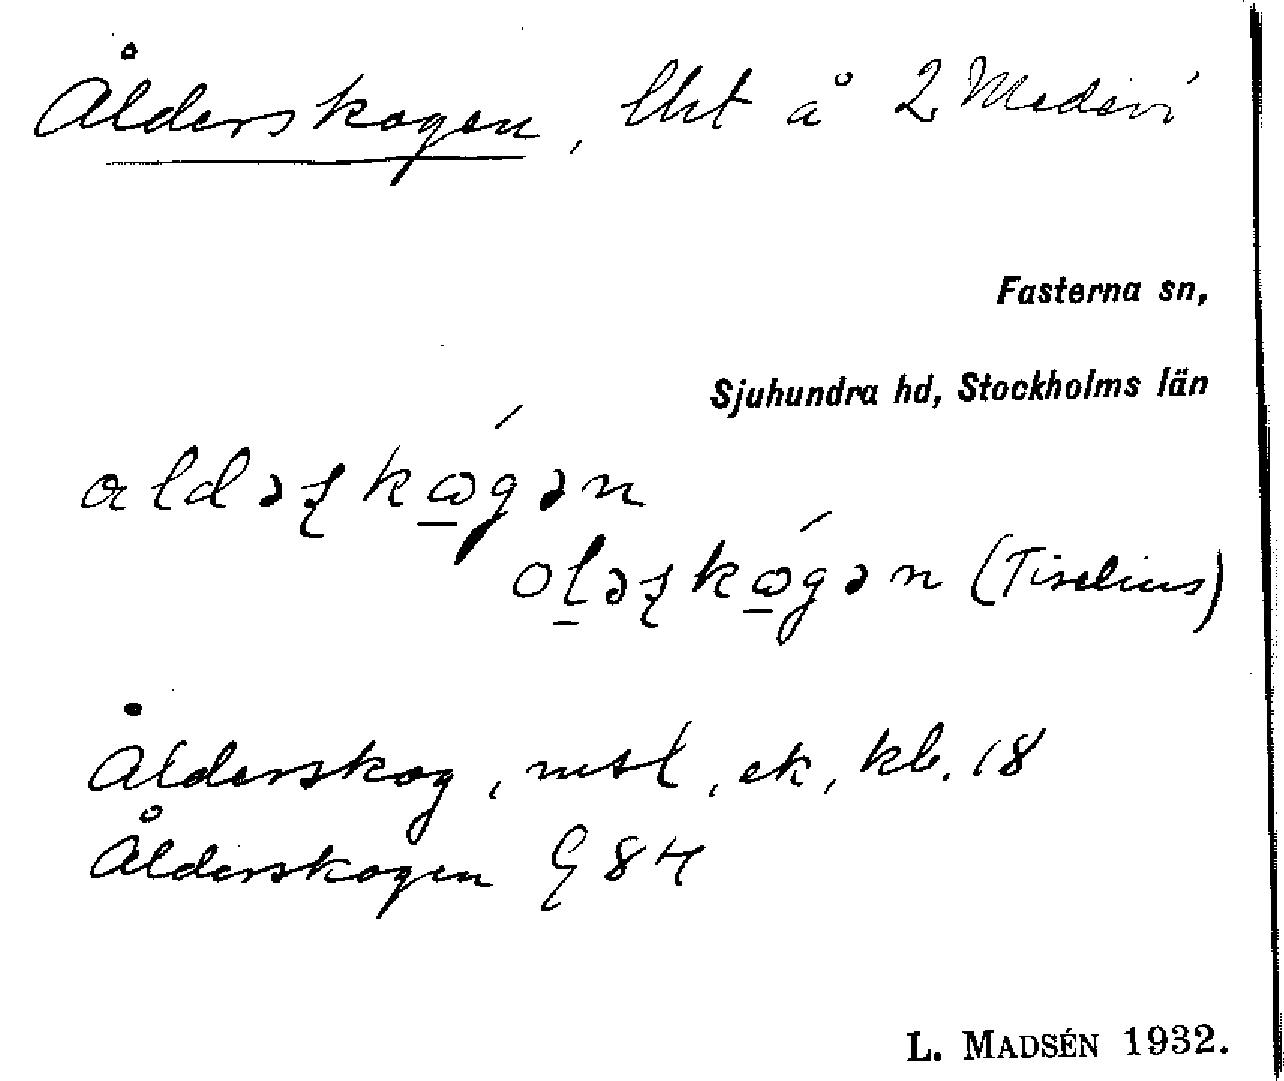 Ålderskogen, lht å 2 Medevi
Fasterna sn,
Sjuhundra hd, Stockholms län
aldəʂkώ̲gən
oɫ̲əʂkώ̲gən (Tiselius)
Ålderskog, ek, kb. 18
Ålderskogen G 84
L. MADSÉN 1932.